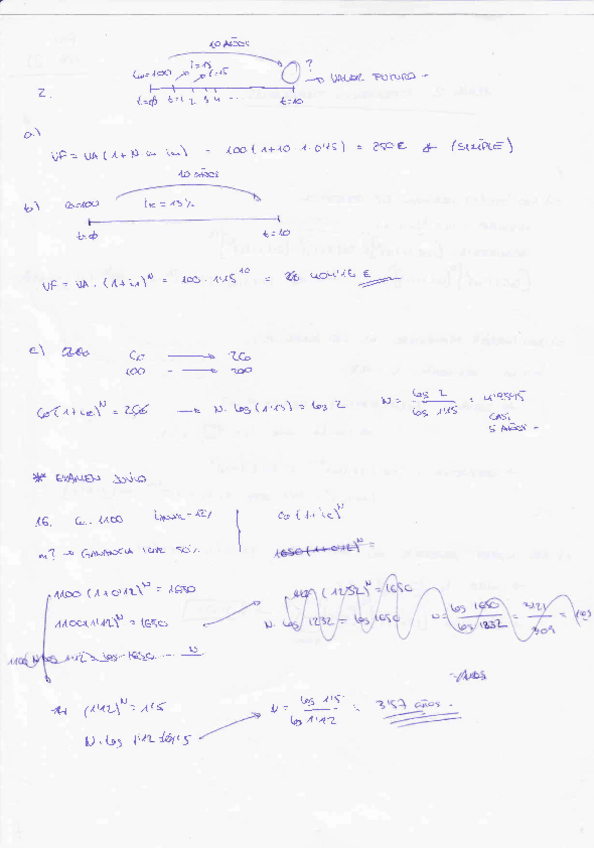 10 AÑOS
C₀=100 i=15 i=15 ? → VALOR FUTURO -
2. t=0 t=1 2 3 4 ... t=10
a)
VF = VA (1 + N · i) = 100 (1+10 · 0'15) = 250 € (SIMPLE)
10 AÑOS
b) C₀=100 = 15%
t=0 t=10
VF = VA · (1+i)^N = 100 · 1'15^10 = 404'16 €
c) C₀ → 2C₀
100 → 200
C₀(1+ic)^N = 2C₀ → N · log (1'15) = log 2 N = log 2 / log 1'15 = 4'9595
CASI
5 AÑOS -
** EXAMEN JUNIO
16. C₀ = 1100 = 12% C₀ (1+ic)^N
n? → GANANCIA 50% 1650 (1+0'12)^N =
1100 (1+0'12)^N = 1650 (1232)^N = 1650
1100 · 1'12)^N = 1650 N · log 1232 = log 1650 N = log 1650 / log 1232 =
(1'12)^N = 1'5 N = log 1'5 / log 1'12 = 3'57 años.
N · log 1'12 = log 1'5